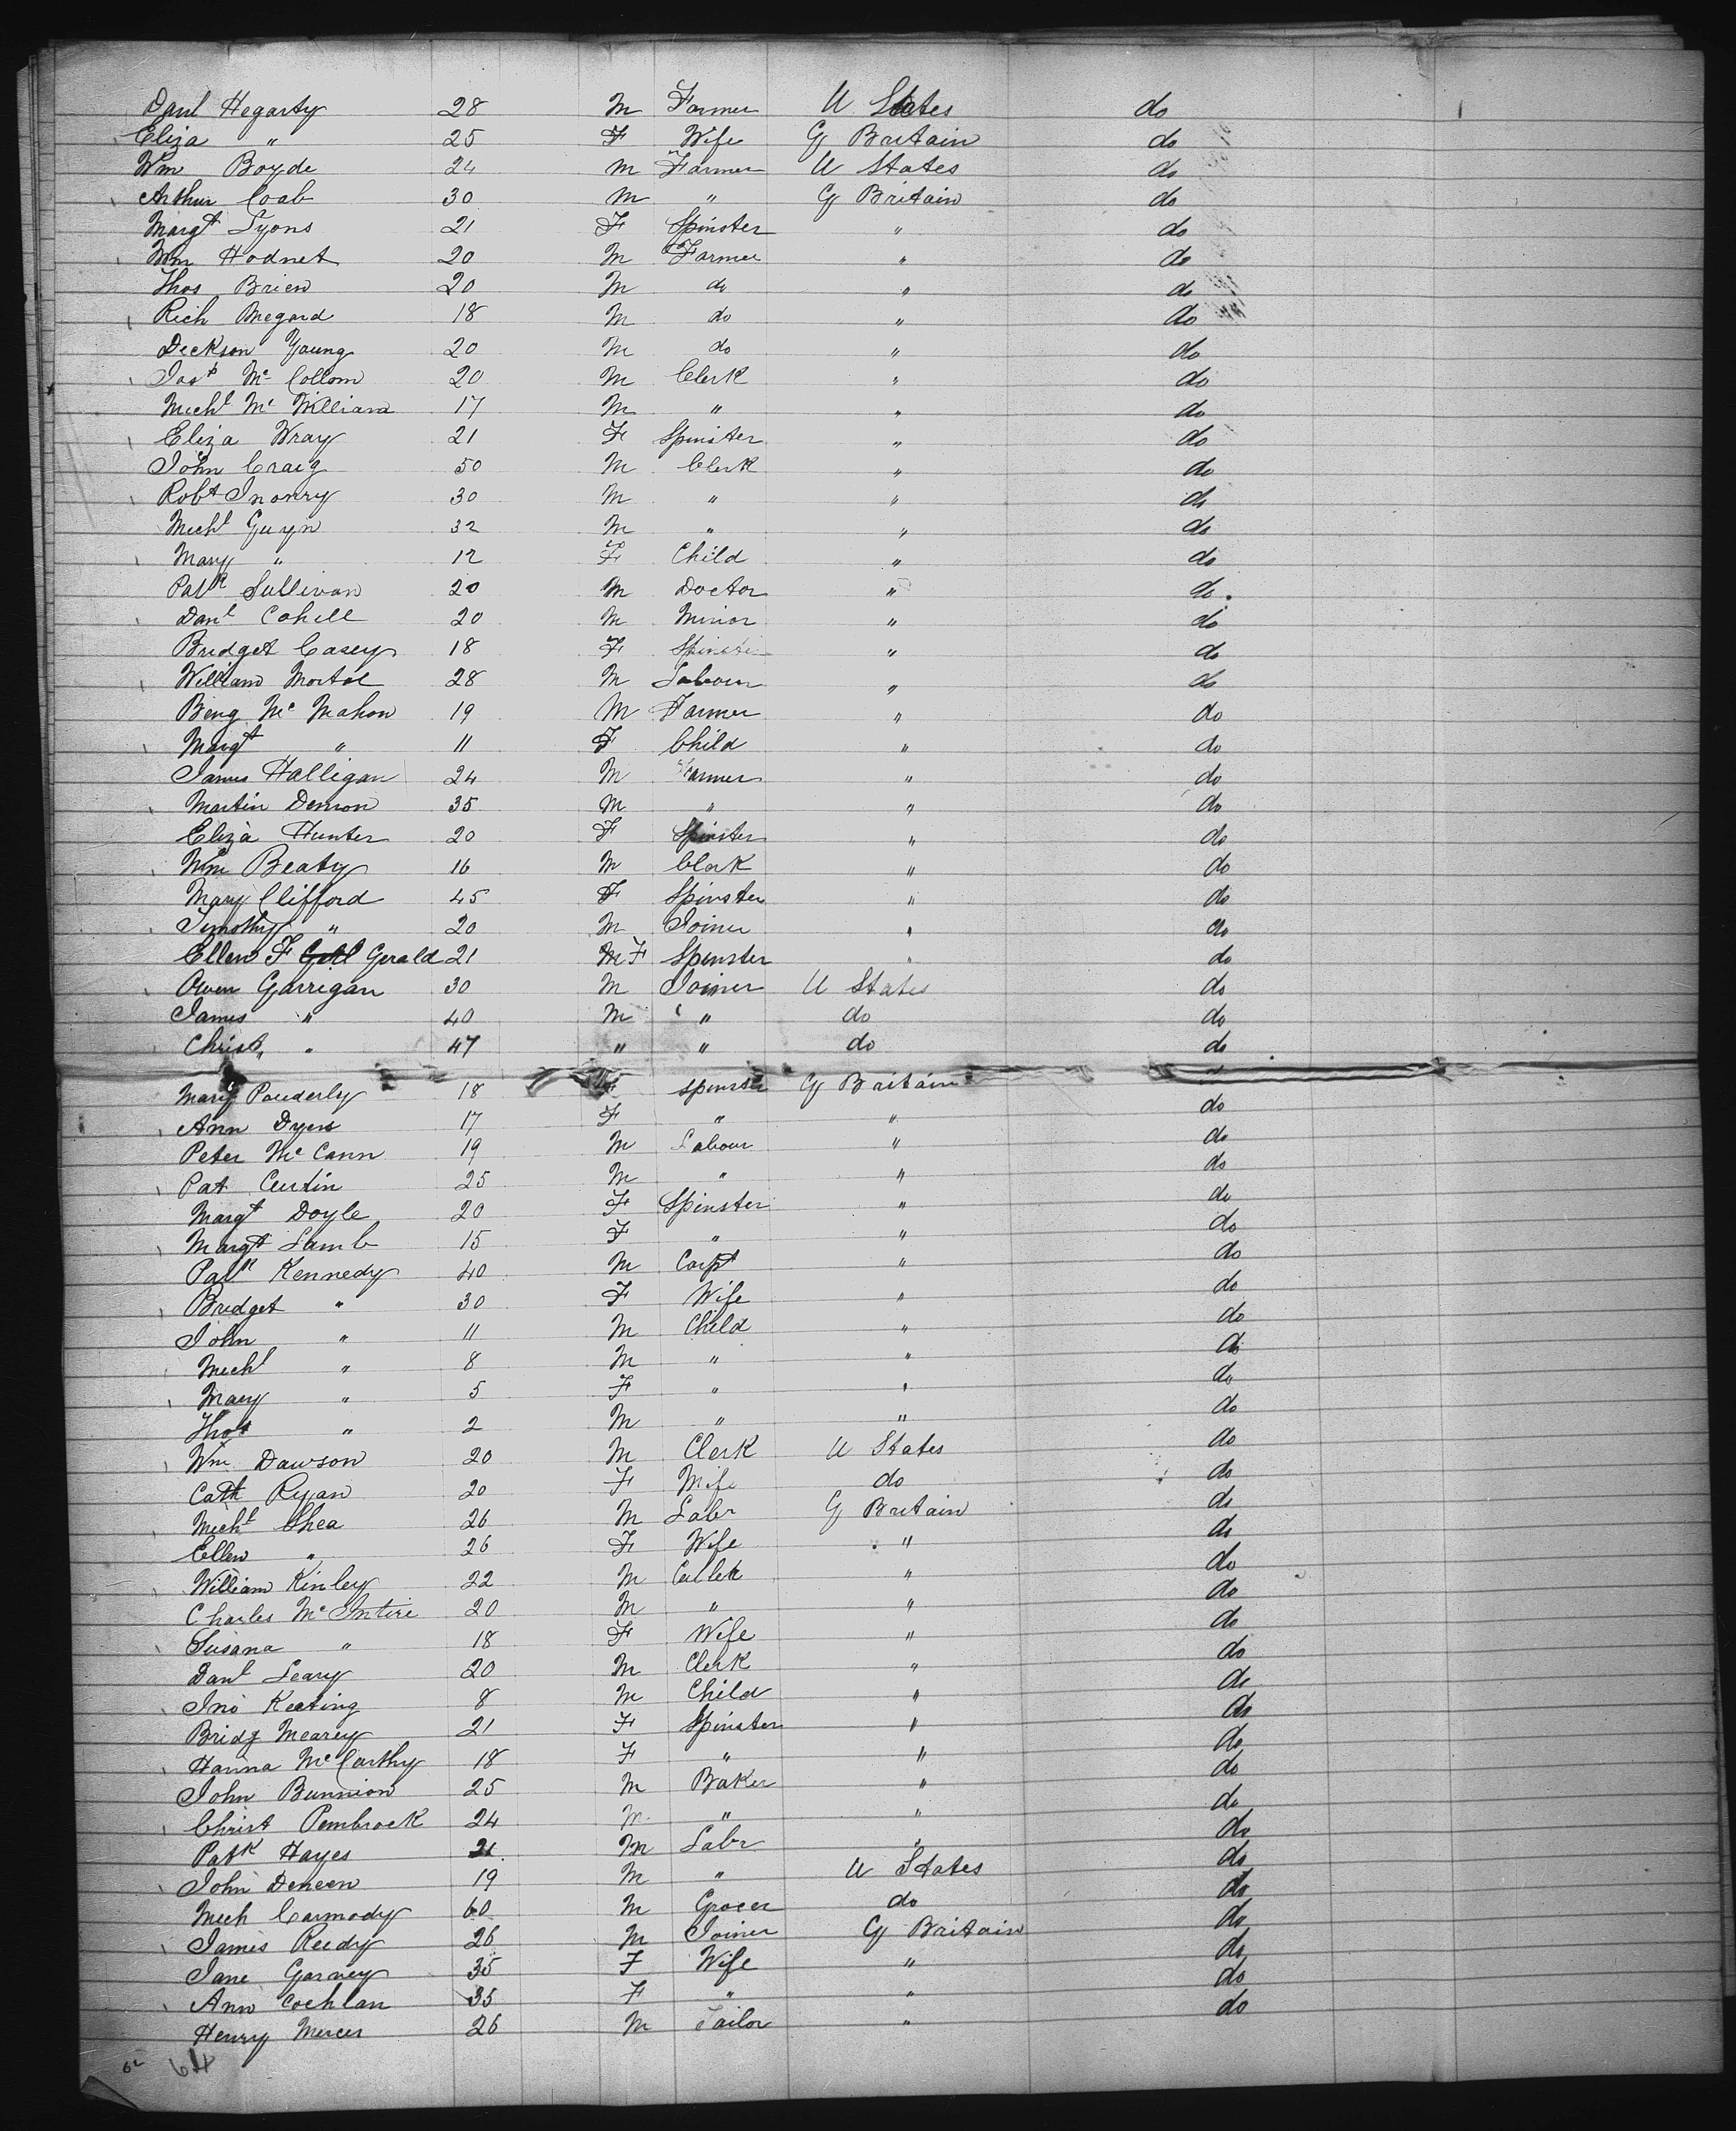 Danl Hegarty 28 M Farmer U States do
Eliza " 25 F Wife G Britain do
Wm Boyde 24 M Farmer U States do
Arthur Coab 30 M " G Britain do
Margt Lyons 21 F Spinster " do
Wm Hodnet 20 M Farmer " do
Thos Brien 20 M do " do
Rich Megard 18 M do " do
Deckson Young 20 M do " do
Jost Mc Collom 20 M Clerk " do
Michl Mc William 17 M " " do
Eliza Wray 21 F Spinster " do
John Craig 50 M Clerk " do
Robt 30 M " " do
Michl Guryn 32 M " " do
Mary " 12 F Child " do
Patk Sullivan 20 M Doctor " do
Danl Cahill 20 M Minor " do
Bridget Casey 18 F Spinster " do
William Mortal 28 M Labour " do
Beng Mc Mahon 19 M Farmer " do
Margt " 11 F Child " do
James Halligan 24 M Farmer " do
Martin Demon 35 M " " do
Eliza Hunter 20 F Spinster " do
Wm Beaty 16 M Clerk " do
Mary Clifford 45 F Spinster " do
Timothy " 20 M Joiner " do
Ellen F Gerald 21 F Spinster " do
Owen Garrigan 30 M Joiner U States do
James " 40 M " do do
Christ " 47 " " do do
Mary Pouderly 18 F spinster G Britain do
Ann Dyers 17 F " " do
Peter Mc Cann 19 M Labour " do
Pat Curtin 25 M " " do
Margt Doyle 20 F Spinster " do
Margt Lamb 15 F " " do
Patk Kennedy 40 M Carpt " do
Bridget " 30 F Wife " do
John " 11 M Child " do
Michl " 8 M " " do
Mary " 5 F " " do
Thos " 2 M " " do
Wm Dawson 20 M Clerk U States do
Cath Ryan 20 F Wife do do
Michl Shea 26 M Labr G Britain do
Ellen " 26 F Wife " do
William Kinley 22 M " do
Charles Mc Intire 20 M " " do
Susana " 18 F Wife " do
Danl Leary 20 M Clerk " do
Jno Keating 8 M Child " do
Bridg Mearey 21 F Spinster " do
Hanna Mc Carthy 18 F " " do
John Bunnion 25 M Baker " do
Christ Pembrock 24 M " " do
Patk Hayes 21 M Labr " do
John Deneen 19 M " U States do
Mich Carmody 60 M Grocer do do
James Reedy 26 M Joiner G Britain do
Jane Garvey 35 F Wife " do
Ann Cochlan 35 F " " do
Henry Mercer 26 M Tailor " do
64